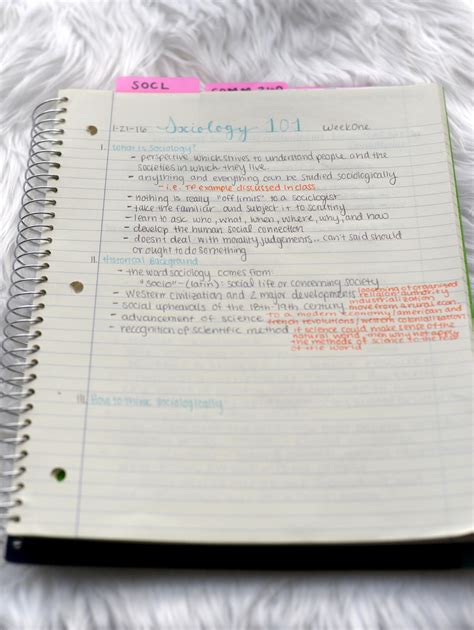 SOCL
COMM 240
1-21-16 Sociology 101 Week One
I. What is Sociology?
- perspective which strives to understand people and the
societies in which they live
- anything and everything can be studied sociologically
- i.e. TP example discussed in class
- nothing is really "off limits" to a sociologist
- take the familiar and subject it to scrutiny
- learn to ask who, what, when, where, why, and how
- develop the human social connection
- doesn't deal with morality judgements... can't said should
or ought to do something
II. Historical Background
- the word sociology comes from:
"Socio"-(latin): social life or concerning society
- Western civilization and 2 major developments weakening of organised
religion authority
industrialization
- social upheavals of the 18th-19th century move from a rural econ.
to a modern economy/american and
french revolutions/western colonialization
- advancement of science
- recognition of scientific method if science could make sense of the
natural world, then why not apply
the methods of science to the rest
of the world
III. How to think sociologically